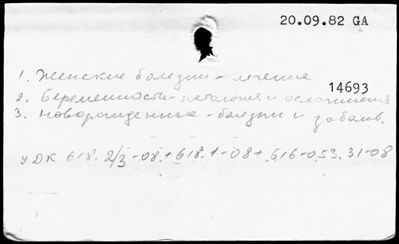 20.09.82 GA
1. Женские болезни - лечение
14693
2. Беременность - патология и осложнения
3. Новорожденные - болезни и заболев.
УДК 618.2/3-08+618.1-08+616-053.31-08